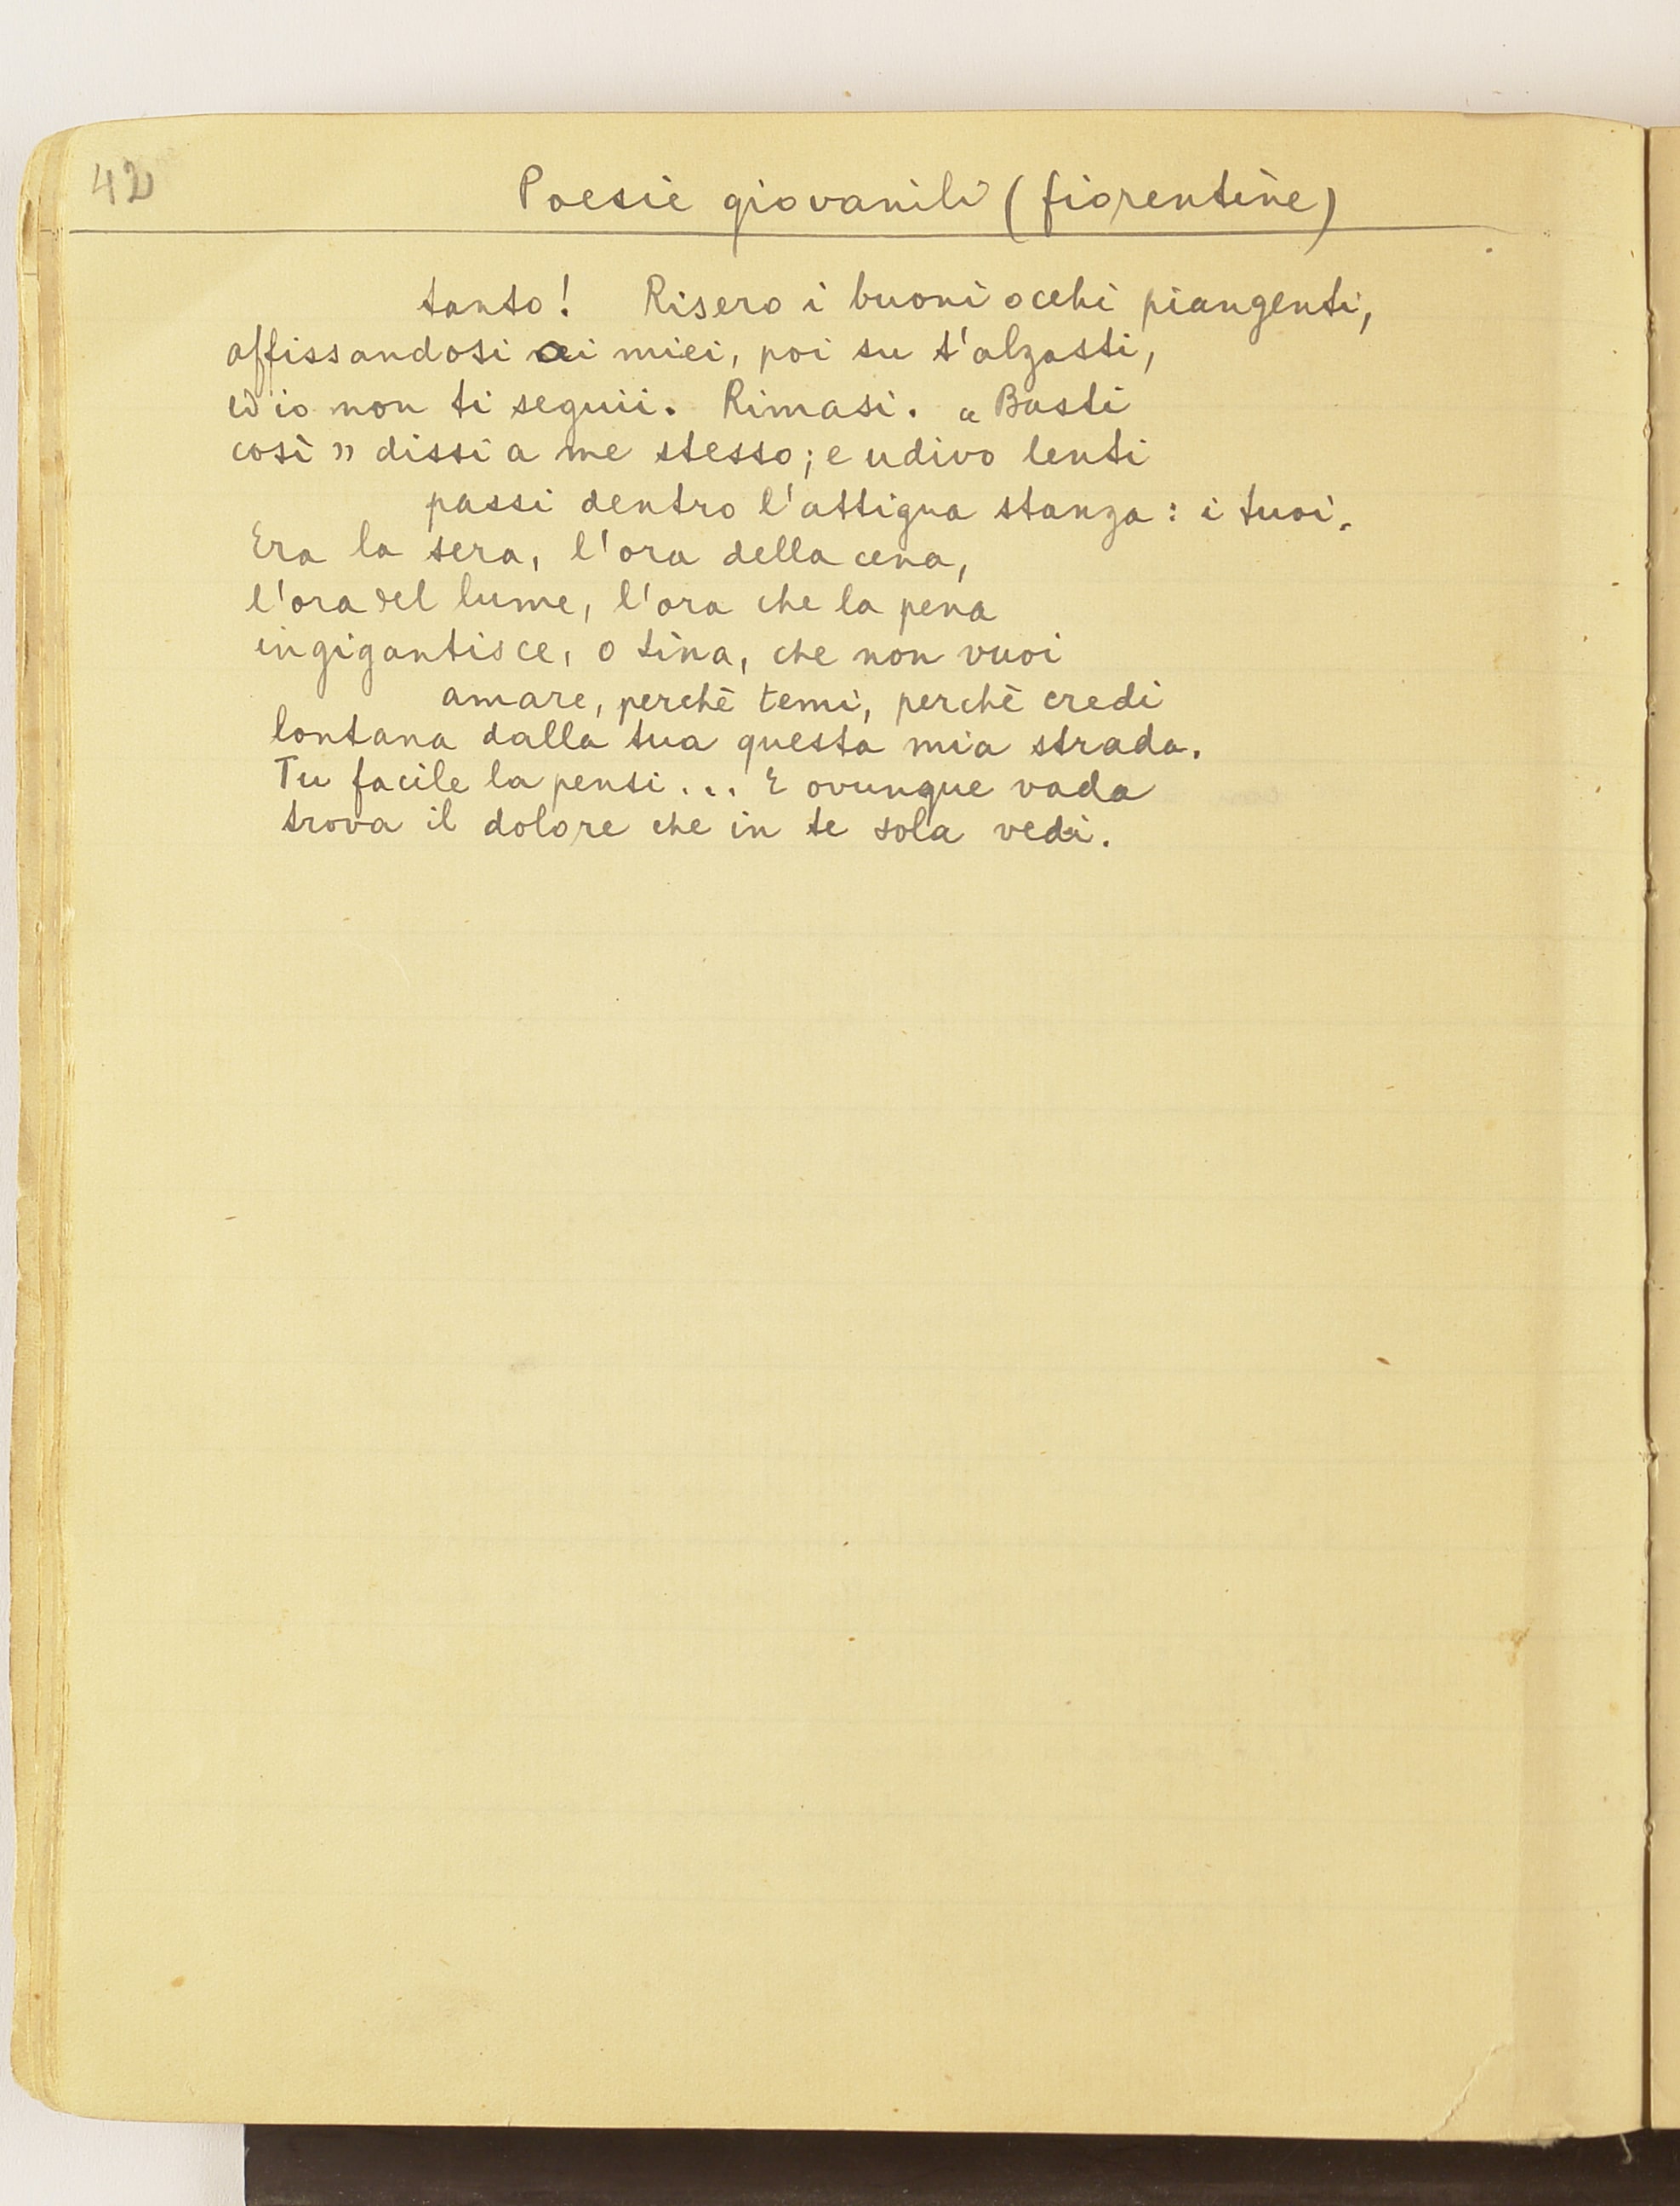 42
Poesie giovanili (fiorentine)
tanto! Risero i buoni occhi piangenti,
affissandosi ai miei, poi su t'alzasti,
ed io non ti seguii. Rimasi. « Basti
così » dissi a me stesso; e udivo lenti
passi dentro l'attigua stanza: i tuoi.
Era la sera, l'ora della cena,
l'ora del lume, l'ora che la pena
ingigantisce, o tina, che non vuoi
amare, perchè temi, perchè credi
lontana dalla tua questa mia strada.
Tu facile la pensi... E ovunque vada
trova il dolore che in te sola vedi.